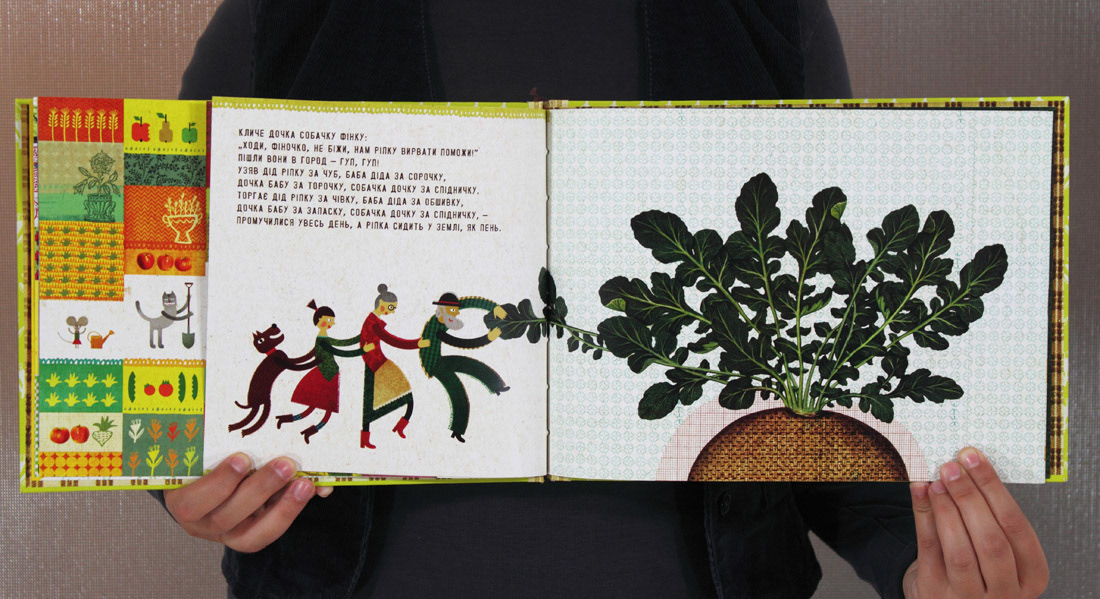 КЛИЧЕ ДОЧКА СОБАЧКУ ФІНКУ:
„ХОДИ, ФІНОЧКО, НЕ БІЖИ, НАМ РІПКУ ВИРВАТИ ПОМОЖИ!"
ПІШЛИ ВОНИ В ГОРОД – ГУП, ГУП!
УЗЯВ ДІД РІПКУ ЗА ЧУБ, БАБА ДІДА ЗА СОРОЧКУ,
ДОЧКА БАБУ ЗА ТОРОЧКУ, СОБАЧКА ДОЧКУ ЗА СПІДНИЧКУ.
ТОРГАЄ ДІД РІПКУ ЗА ЧІВКУ, БАБА ДІДА ЗА ОБШИВКУ,
ДОЧКА БАБУ ЗА ЗАПАСКУ, СОБАЧКА ДОЧКУ ЗА СПІДНИЧКУ, –
ПРОМУЧИЛИСЯ УВЕСЬ ДЕНЬ, А РІПКА СИДИТЬ У ЗЕМЛІ, ЯК ПЕНЬ.